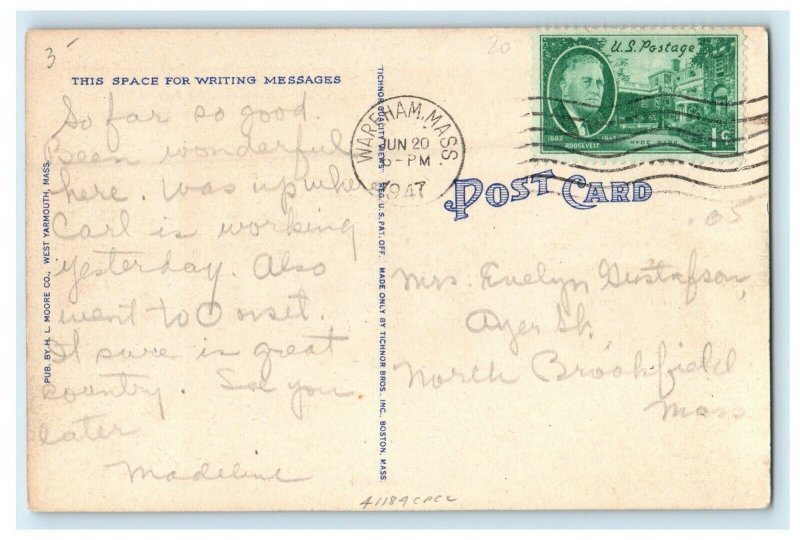 3-
20
THIS SPACE FOR WRITING MESSAGES
So far so good.
Been wonderful
here. Was up where
Carl is working
yesterday. Also
went to Onset.
It sure is great
country. See you
later
Madeline
PUB. BY H. L. MOORE CO., WEST YARMOUTH, MASS.
"TICHNOR QUALITY VIEWS" REG. U.S. PAT. OFF. MADE ONLY BY TICHNOR BROS. INC., BOSTON, MASS.
WAREHAM, MASS
JUN 20
-PM
1947
U.S. Postage
1882 1945
ROOSEVELT HYDE PARK
1¢
POST CARD
.05
Mrs. Evelyn Gustafson,
Ayer St.
North Brookfield
Mass
41184CPCC